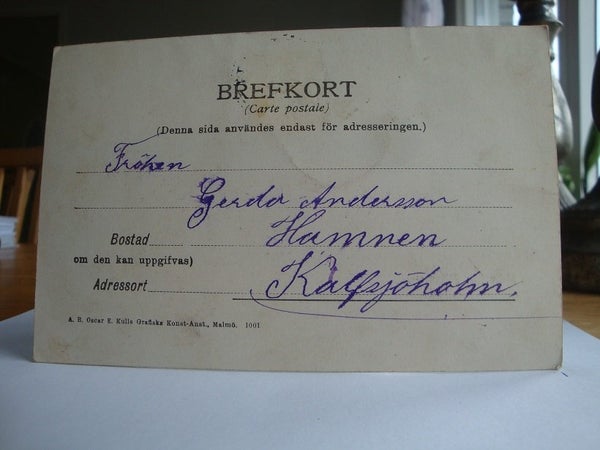 BREFKORT
(Carte postale)
(Denna sida användes endast för adresseringen.)
Fröken
Gerda Andersson
Bostad Hamnen
om den kan uppgifvas)
Adressort Kalfsjöholm.
A. B. Oscar E. Kulls Grafiska Konst-Anst., Malmö. 1001